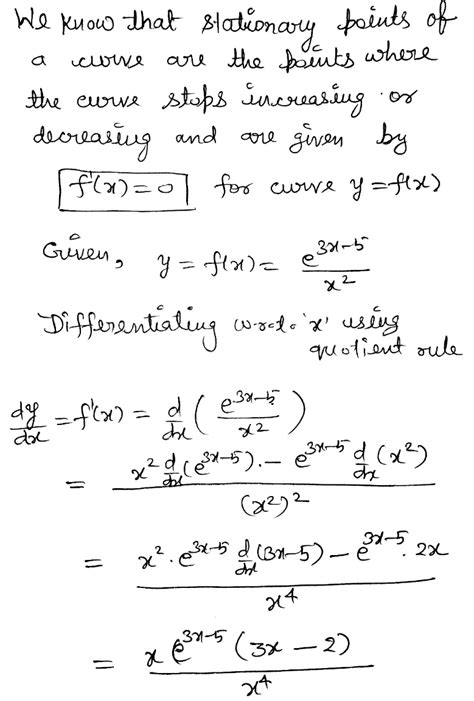 We know that stationary points of
a curve are the points where
the curve stops increasing or
decreasing and are given by
f'(x)=0 for curve y=f(x)
Given, y = f(x) = e^{3x-5}/x^2
Differentiating w.r.to 'x' using
quotient rule
dy/dx = f'(x) = d/dx (e^{3x-5}/x^2)
= (x^2 d/dx (e^{3x-5}) - e^{3x-5} d/dx (x^2))/(x^2)^2
= (x^2 . e^{3x-5} d/dx (3x-5) - e^{3x-5} . 2x)/x^4
= x e^{3x-5} (3x - 2)/x^4